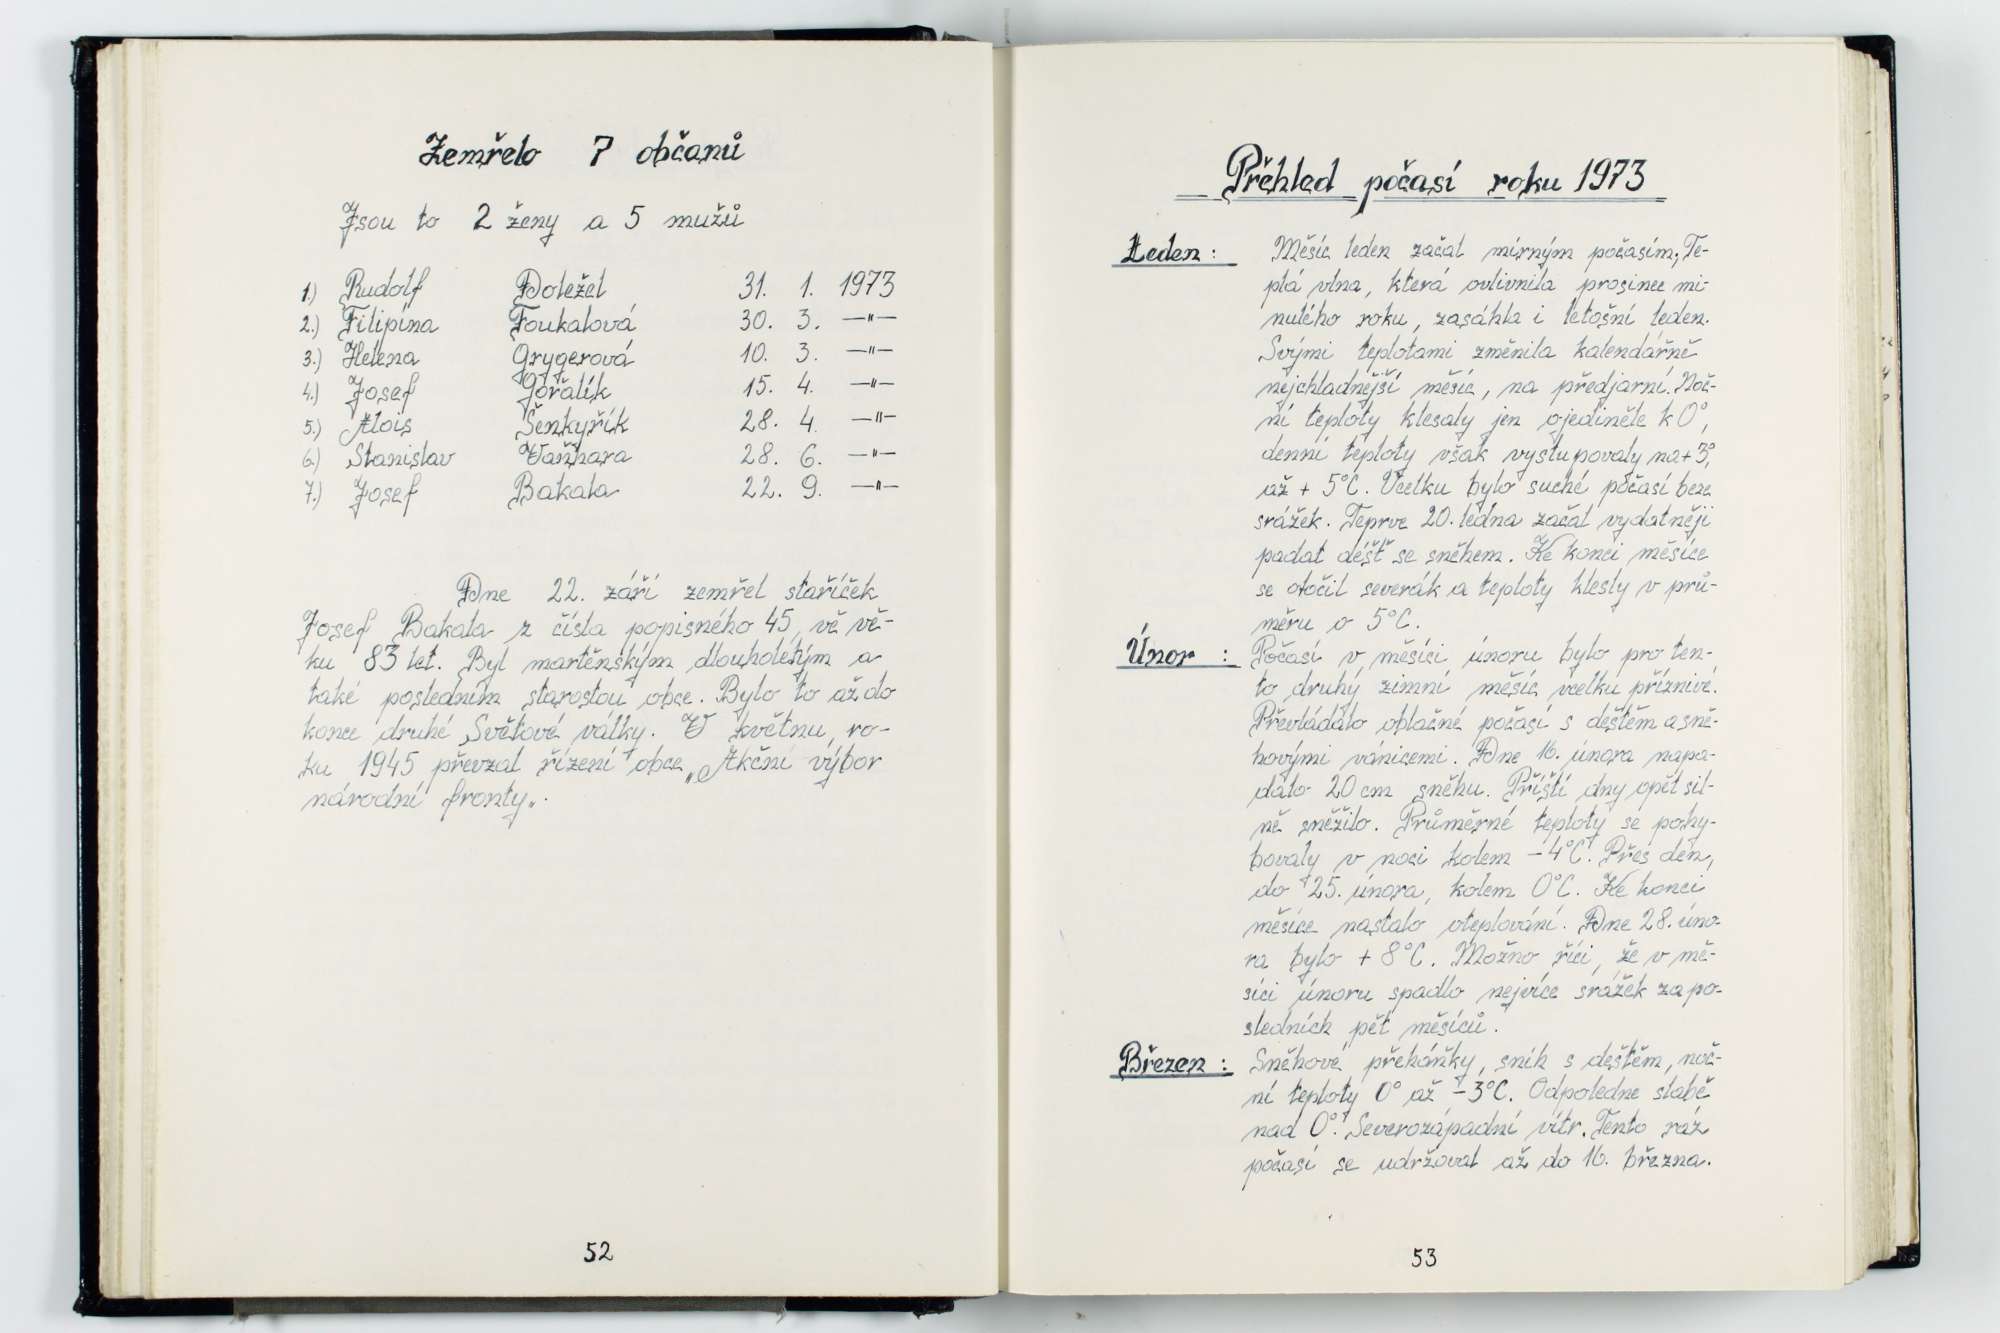 Zemřelo 7 občanů
Jsou to 2 ženy a 5 mužů
1.) Rudolf Doležel 31. 1. 1973
2.) Filipína Foukalová 30. 3. —"—
3.) Helena Grygerová 10. 3. —"—
4.) Josef Gořalík 15. 4. —"—
5.) Alois Šenkyřík 28. 4. —"—
6.) Stanislav Vaňhara 28. 6. —"—
7.) Josef Bakala 22. 9. —"—
Dne 22. září zemřel staříček
Josef Bakala z čísla popisného 45, vě vě-
ku 83 let. Byl martěnským dlouholetým a
také posledním starostou obce. Bylo to až do
konce druhé Světové války. V květnu ro-
ku 1945 převzal řízení obce „Akční výbor
národní fronty„.
52
Přěhled počasí roku 1973
Leden : Měsíc leden začal mírným počasím; Te-
plá vlna, která ovlivnila prosinec mi-
nulého roku, zasáhla i letošní leden.
Svými teplotami změnila kalendářně
nejchladnější měsíc, na předjarní. Noč-
ní teploty klesaly jen ojediněle k 0°,
denní teploty však vystupovaly na + 3°,
až + 5°C. Vcelku bylo suché počasí beze
srážek. Teprve 20. ledna začal vydatněji
padat déšť se sněhem. Ke konci měsíce
se otočil severák a teploty klesly v prů-
měru o 5°C.
Únor : Počasí v měsíci únoru bylo pro ten-
to druhý zimní měsíc vcelku příznivé.
Převládalo oblačné počasí s deštěm a sně-
hovými vánicemi. Dne 16. února napa-
dalo 20 cm sněhu. Příští dny opět sil-
ně sněžilo. Průměrné teploty se pohy-
bovaly v noci kolem - 4°C. Přes den,
do 25. února, kolem 0°C. Ke konci
měsíce nastalo oteplování. Dne 28. úno-
ra bylo + 8°C. Možno říci, že v mě-
síci únoru spadlo nejvíce srážek za po-
sledních pět měsíců.
Březen : Sněhové přeháňky, sníh s deštěm, noč-
ní teploty 0° až - 3°C. Odpoledne slabě
nad 0°. Severozápadní vítr. Tento ráz
počasí se udržoval až do 16. března.
53